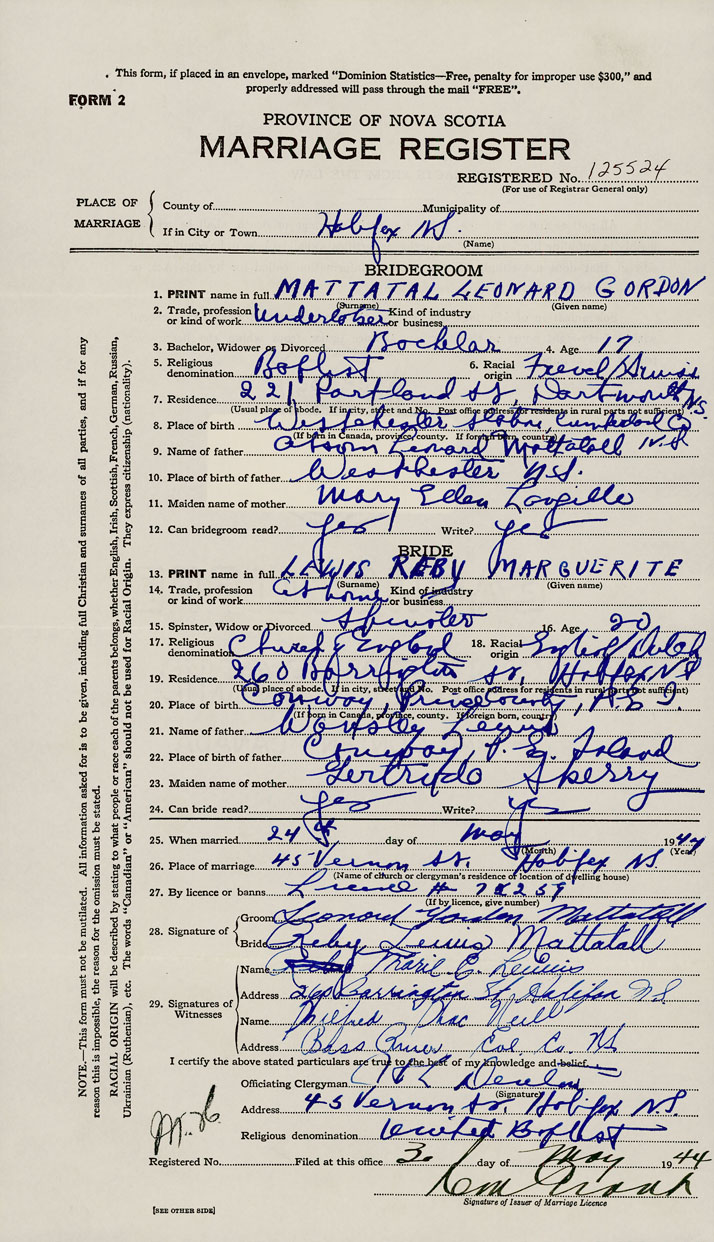 . This form, if placed in an envelope, marked "Dominion Statistics—Free, penalty for improper use $300," and
properly addressed will pass through the mail "FREE".
FORM 2
PROVINCE OF NOVA SCOTIA
MARRIAGE REGISTER
REGISTERED No. 125524
(For use of Registrar General only)
PLACE OF MARRIAGE
County of Municipality of
If in City or Town Halifax NS.
(Name)
BRIDEGROOM
1. PRINT name in full MATTATAL LEONARD GORDON
(Surname) (Given name)
2. Trade, profession or kind of work Kind of industry or business
3. Bachelor, Widower or Divorced Bachelar 4. Age 17
5. Religious denomination Baptist 6. Racial origin
7. Residence 221 Portland St, Dartmouth N.S.
(Usual place of abode. If in city, street and No. Post office address for residents in rural parts not sufficient)
8. Place of birth Westchester Station, Cumberland Co. N.S
(If born in Canada, province, county. If foreign born, country)
9. Name of father Lenard Mattatall
10. Place of birth of father Westchester N.S.
11. Maiden name of mother Mary Ellen Langille
12. Can bridegroom read? yes Write? yes
BRIDE
13. PRINT name in full LEWIS REBY MARGUERITE
(Surname) (Given name)
14. Trade, profession or kind of work at home Kind of industry or business
15. Spinster, Widow or Divorced Spinster 16. Age 20
17. Religious denomination Church of England 18. Racial origin English Dutch
19. Residence 260 Barrington St, Halifax NS
(Usual place of abode. If in city, street and No. Post office address for residents in rural parts not sufficient)
20. Place of birth Conway, Prince County, P.E.I.
(If born in Canada, province, county. If foreign born, country)
21. Name of father Lewis
22. Place of birth of father Conway, P.E. Island
23. Maiden name of mother Gertrude Sperry
24. Can bride read? yes Write? yes
25. When married 24 day of May 1944
(Month) (Year)
26. Place of marriage 45 Vernon St. Halifax NS.
(Name of church or clergyman's residence of location of dwelling house)
27. By licence or banns Licence #
(If by licence, give number)
28. Signature of
Groom Leonard Gordon Mattatall
Bride Reby Lewis Mattatall
29. Signatures of Witnesses
Name Marie C. Lewis
Address 260 Barrington St. Halifax N S
Name Wilfred Mac Neill
Address Bass River Col. Co. NS
I certify the above stated particulars are true to the best of my knowledge and belief.
Officiating Clergyman
(Signature)
Address 45 Vernon St. Halifax N.S.
Religious denomination United Baptist
Registered No. Filed at this office day of May 1944
Signature of Issuer of Marriage Licence
[SEE OTHER SIDE]
NOTE.—This form must not be mutilated. All information asked for is to be given, including full Christian and surnames of all parties, and if for any
reason this is impossible, the reason for the omission must be stated.
RACIAL ORIGIN will be described by stating to what people or race each of the parents belongs, whether English, Irish, Scottish, French, German, Russian,
Ukrainian (Ruthenian), etc. The words "Canadian" or "American" should not be used for Racial Origin. They express citizenship (nationality).